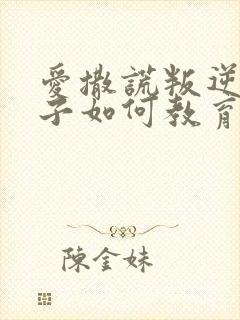 愛撒謊叛逆
子如何教育
陳金妹